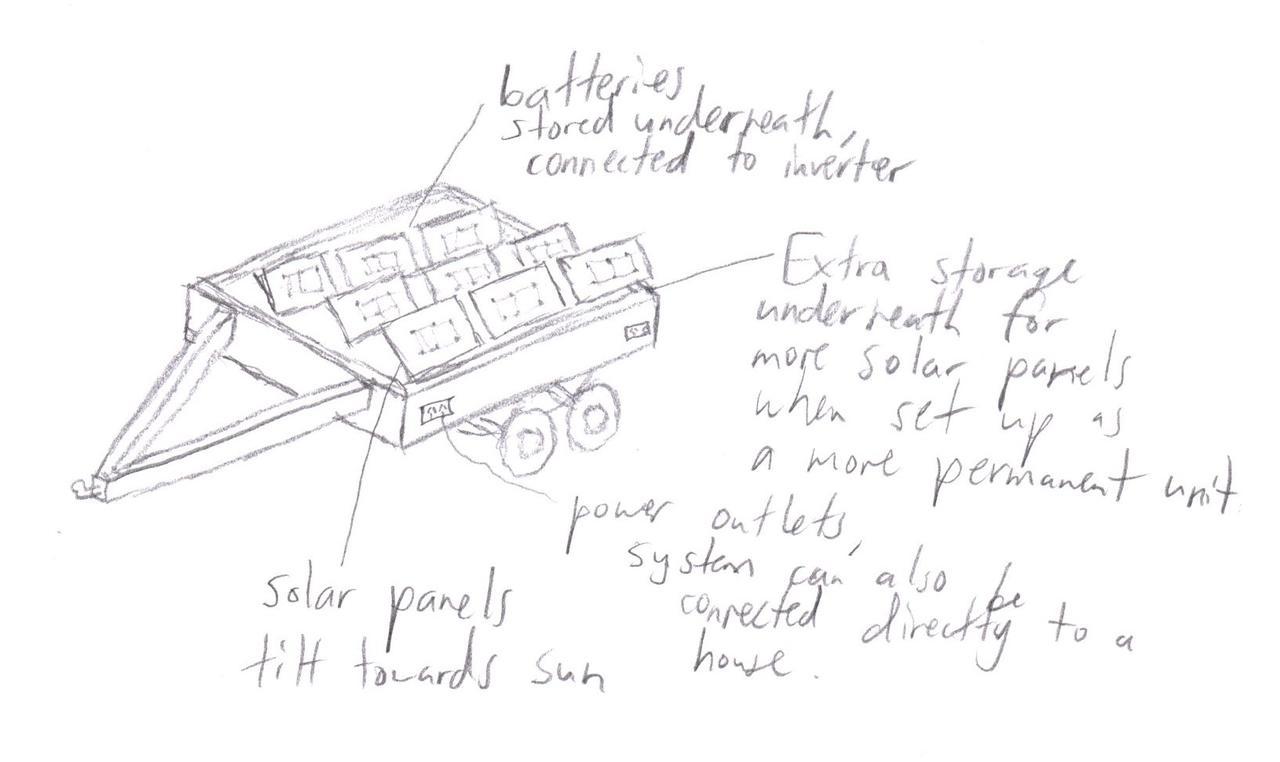 batteries
stored underneath,
connected to inverter
Extra storage
underneath for
more solar panels
when set up as
a more permanent unit.
power outlets,
system can also be
connected directly to a
house.
solar panels
tilt towards sun